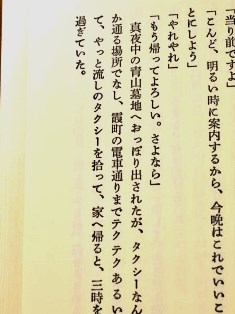 「当り前ですよ」
「こんど、明るい時に案内するから、今晩はこれでいいこ
とにしよう」
「やれやれ」
「もう帰ってよろしい。さよなら」
真夜中の青山墓地へおっぽり出されたが、タクシーなん
か通る場所でなし、霞町の電車通りまでテクテクあるい
て、やっと流しのタクシーを拾って、家へ帰ると、三時を
過ぎていた。